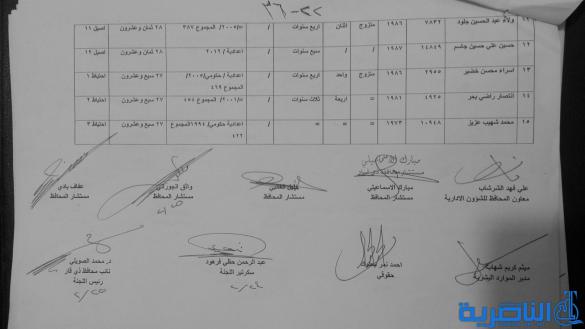 ٢٢-٣٦
١١ ولاء عبد الحسين جلود ٧٨٣٢ ١٩٨٦ متزوج اثنان اربع سنوات / ٢٠٠٥/= المجموع ٣٨٧ ٢٨ ثمان وعشرون اصيل ١١
حسين علي حسين جاسم ١٤٨٤٩ ١٩٨٧ / / سبع سنوات / اعدادية / ٢٠١٦ ٢٨ ثمان وعشرون اصيل ١٢
١٣ اسراء محسن خضير ٢٩٥٥ ١٩٨٦ متزوج واحد اربع سنوات / اعدادية / حكومي/٢٠٠٥ ٢٧ سبع وعشرون احتياط ١
المجموع ٤٦٩
١٤ انتصار راضي بحر ٤٩٢٥ ١٩٨١ = اربعة ثلاث سنوات / ٢٠٠١/= المجموع ٤٥٤ ٢٧ سبع وعشرون احتياط ٢
١٥ محمد شهيب عزيز ١٠٩٤٨ ١٩٧٣ = = = / اعدادية حكومي/ ١٩٩٤المجموع ٤٢٢ ٢٧ سبع وعشرون احتياط ٣
علي فهد الشرشاب
معاون المحافظ للشؤون الادارية
مبارك الاسماعيلي
مستشار المحافظ
مستشار المحافظ
واثق الجبوراني
مستشار المحافظ
عفاف بادي
مستشار المحافظ
ميثم كريم شهابة
مدير الموارد البشرية
احمد نمر
حقوقي
عبد الرحمن حطي فرهود
سكرتير اللجنة
د. محمد الصويلي
نائب محافظ ذي قار
رئيس اللجنة
الناصرية